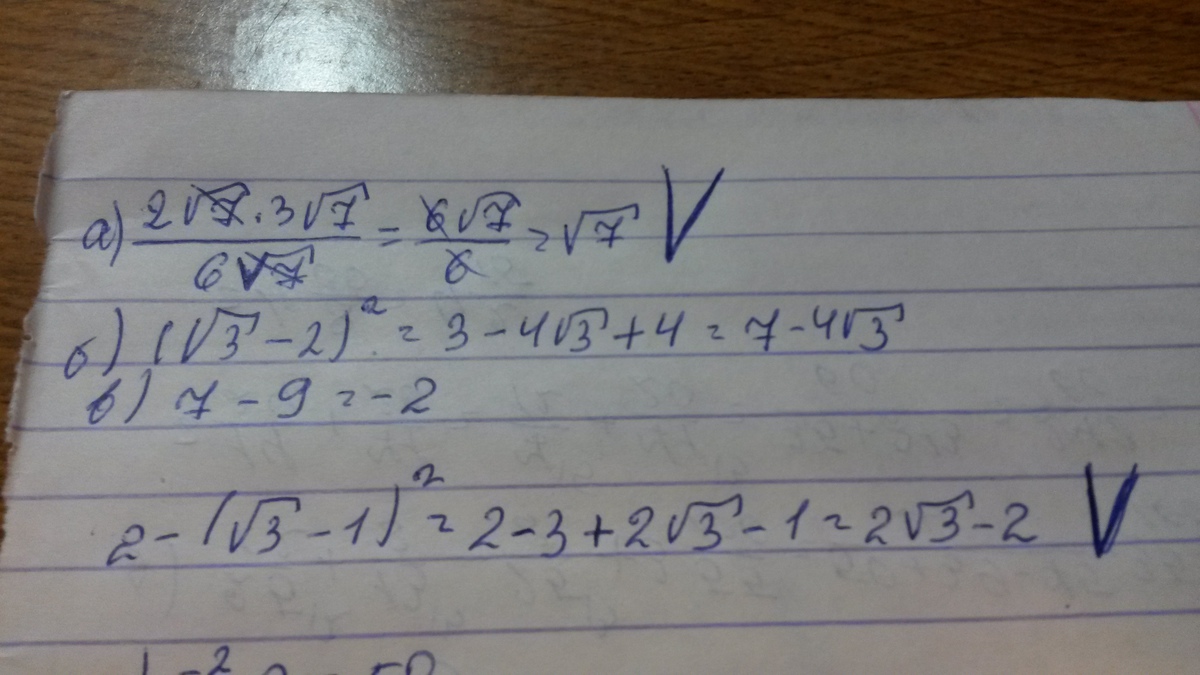 а) (2√7 · 3√7)/(6√7) = 6√7/6 = √7 V
б) (√3 - 2)² = 3 - 4√3 + 4 = 7 - 4√3
в) 7 - 9 = -2
2 - (√3 - 1)² = 2 - 3 + 2√3 - 1 = 2√3 - 2 V